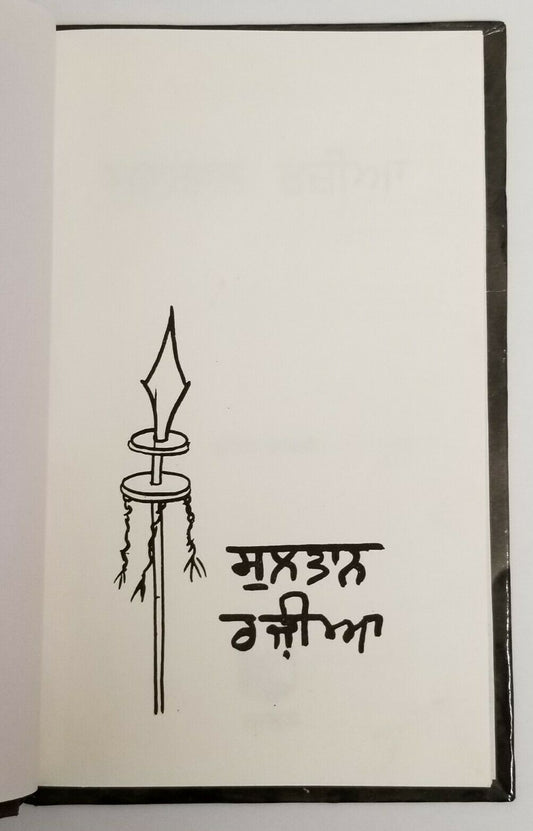 ਸੁਲਤਾਨ
ਰਜ਼ੀਆ